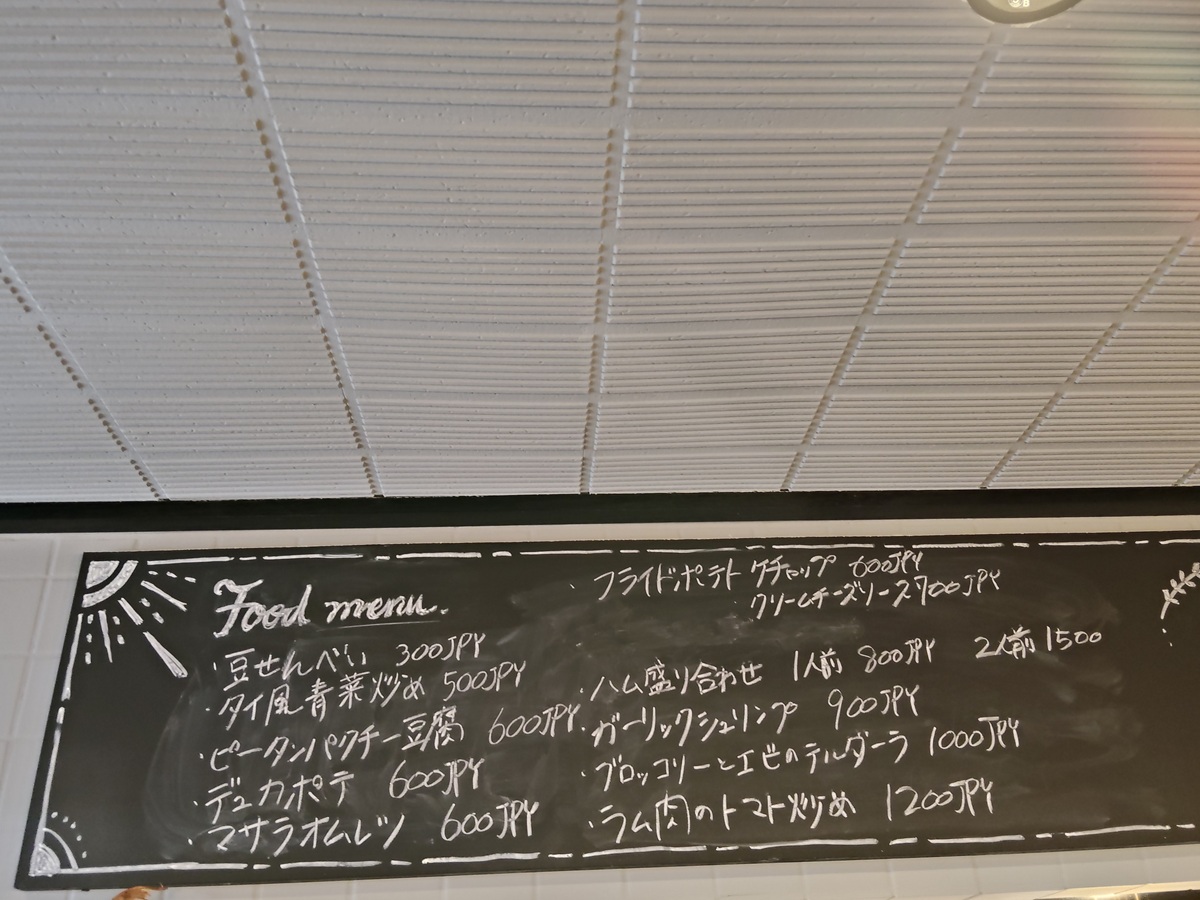 Food menu.
・豆せんべい 300JPY
・タイ風青菜炒め 500JPY
・ピータンパクチー豆腐 600JPY
・デュカポテ 600JPY
・マサラオムレツ 600JPY
・フライドポテト ケチャップ 600JPY
クリームチーズソース700JPY
・ハム盛り合わせ 1人前 800JPY 2人前 1500
・ガーリックシュリンプ 900JPY
・ブロッコリーとエビのテルダーラ 1000JPY
・ラム肉のトマト炒め 1200JPY